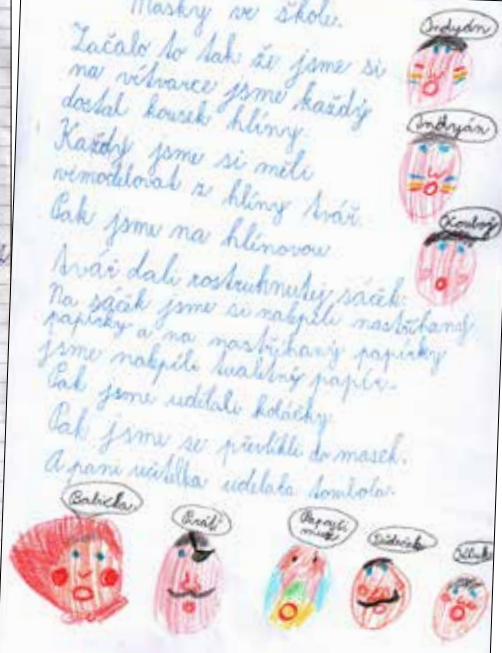 Masky ve škole.
Začalo to tak že jsme si
na vítvarce jsme každý
dostal kousek hlíny.
Každý jsme si měli
vimodelovat z hlíny tvář.
Pak jsme na hlínovou
tvář dali rostruhnutej sáček.
Na sáčik jsme si nalepili nastříhaný
papírky a na nastříhaný papírky
jsme nalepili tualetný papír.
Pak jsme udělali koláčky.
Pak jsme se převlíkli do masek.
A paní učitelka udělala tombola.
Indyán
Indyán
Babička
Pirát
Papouší
Dědeček
Kluk